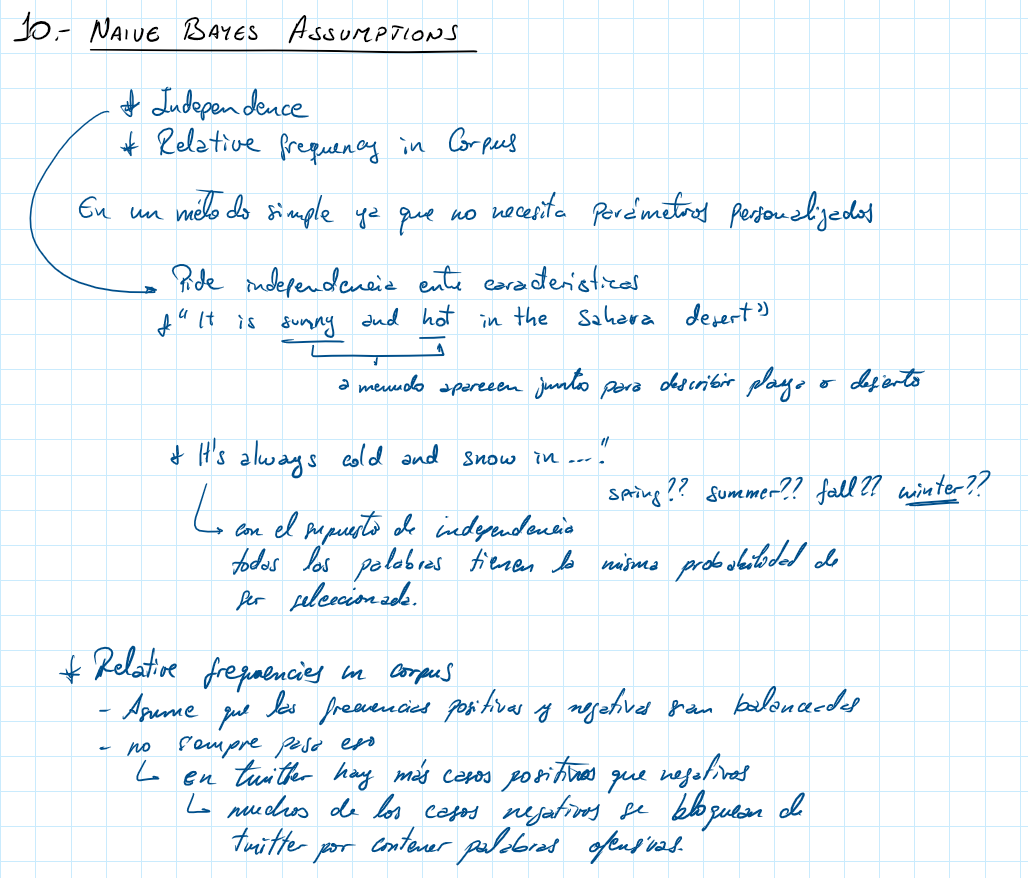 10.- NAIVE BAYES ASSUMPTIONS
* Independence
* Relative frequency in Corpus
En un método simple ya que no necesita parámetros personalizados
Pide independencia ente características
* "It is sunny and hot in the Sahara desert"
a menudo aparecen junto para describir playa o desierto
* It's always cold and snow in ...."
spring?? summer?? fall?? winter??
con el supuesto de independencia
todas las palabras tienen la misma probabilidad de
ser seleccionada.
* Relative frequencies in corpus
- Asume que las frecuencias positivas y negativas sean balanceadas
- no siempre pasa eso
en twitter hay más casos positivos que negativos
muchos de los casos negativos se bloquean de
twitter por contener palabras ofensivas.